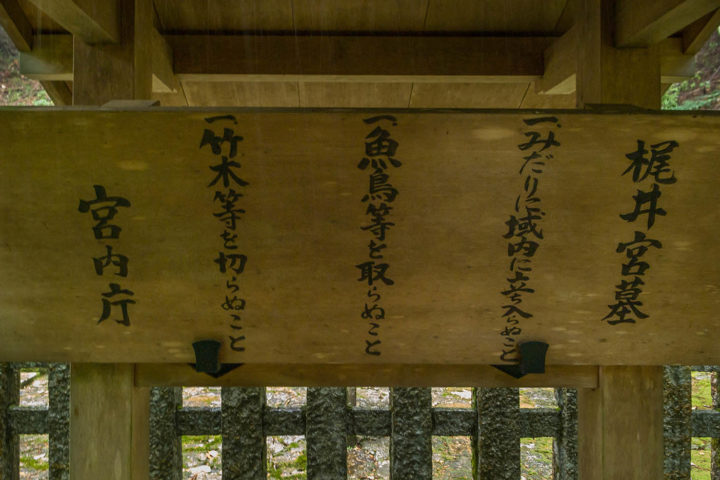 梶井宮墓
一、みだりに域内に立ち入らぬこと
一、魚鳥等を取らぬこと
一、竹木等を切らぬこと
宮内庁